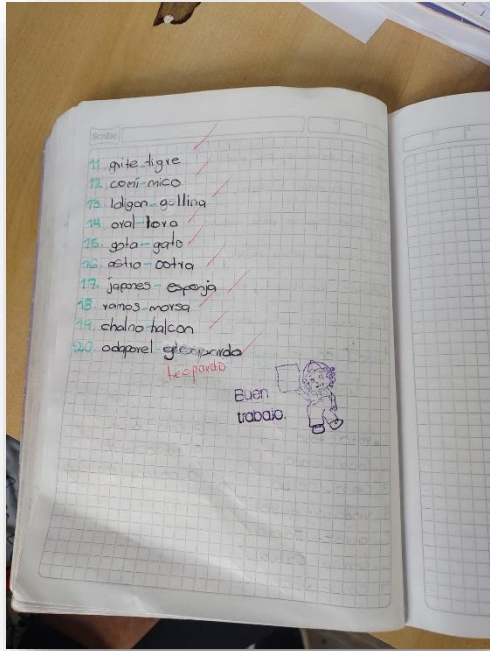 Scribe
11. grite-tigre
12. comi-mico
13. laligan-gallina
14. oral-lora
15. gota-gato
16. astro-ostra
17. japones-esponja
18. ramos-morsa
19. chalno halcon
20. odaporel-
leopardo
Buen
trabajo.